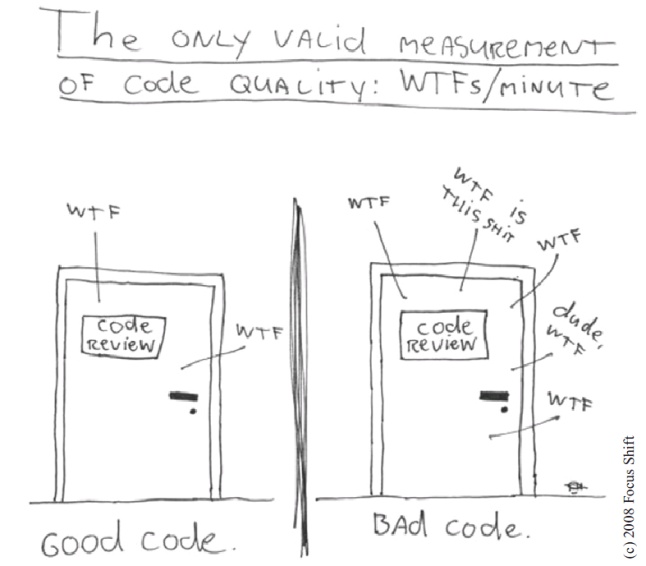 The ONLY VALID MEASUREMENT
OF Code QUALITY: WTFs/MINUTE
WTF
code
REVIEW
WTF
GOOD CODE.
WTF
WTF is
THIS SHIT
WTF
code
REVIEW
dude,
WTF
WTF
BAd code.
(c) 2008 Focus Shift